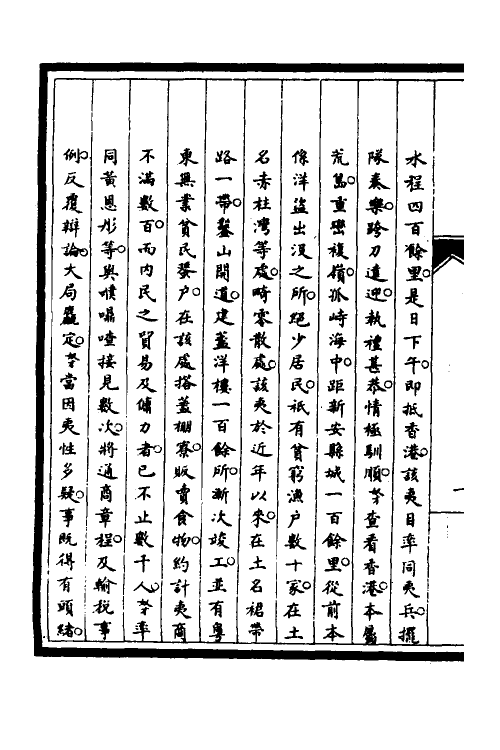 水程四百餘里。是日下午。即抵香港。該夷目率同夷兵。擺
隊奏樂。跨刀遠迎。執禮甚恭。情極馴順。奴才查看香港。本屬
荒島。重巒複嶺。孤峙海中。距新安縣城一百餘里。從前本
係洋盜出沒之所。絕少居民。祇有貧窮漁户數十家。在土
名赤柱灣等處。畸零散處。該夷於近年以來。在土名裙帶
路一帶。鑿山開道。建蓋洋樓一百餘所。漸次竣工。並有粵
東無業貧民蜑户。在該處搭蓋棚寮。販賣食物。約計夷商
不滿數百。而內民之貿易及傭力者。已不止數千人。奴才率
同黃恩彤等。與噗嘣喳接見數次。將通商章程。及輸稅事
例。反覆辯論。大局麤定。奴才當因夷性多疑。事既得有頭緒。